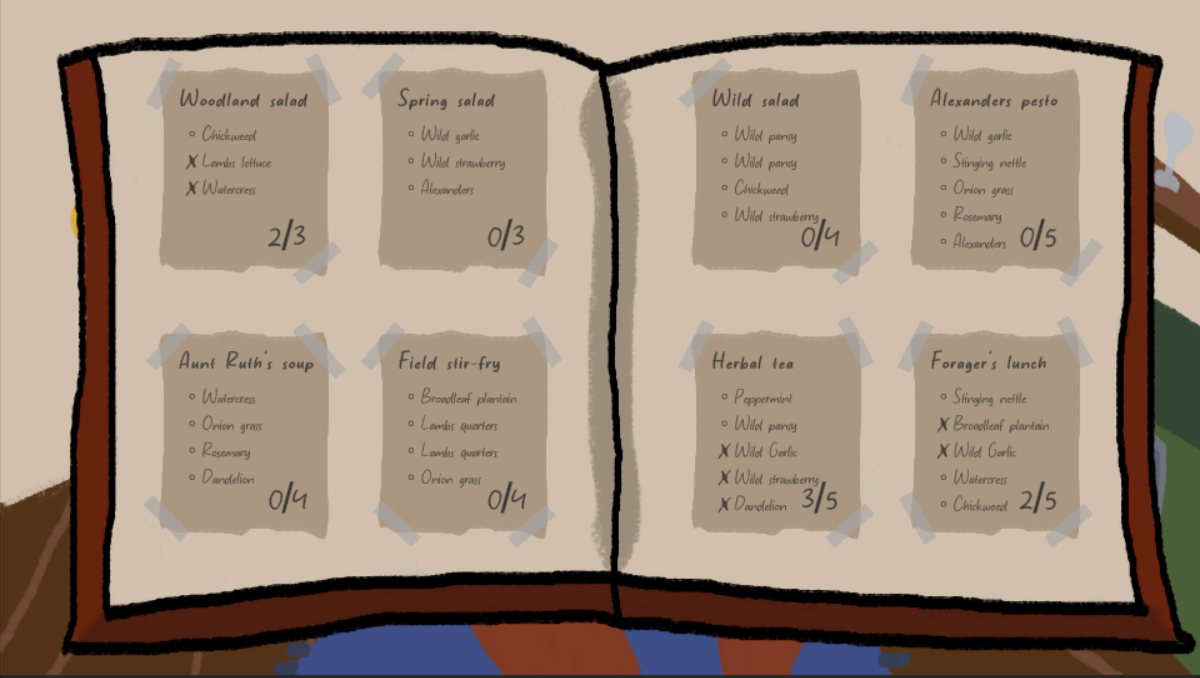 Woodland salad
Chickweed
X Lambs lettuce
X Watercress
2/3
Spring salad
Wild garlic
Wild strawberry
Alexanders
0/3
Wild salad
Wild pansy
Wild pansy
Chickweed
Wild strawberry
0/4
Alexanders pesto
Wild garlic
Stinging nettle
Onion grass
Rosemary
Alexanders
0/5
Aunt Ruth's soup
Watercress
Onion grass
Rosemary
Dandelion
0/4
Field stir-fry
Broadleaf plantain
Lambs quarters
Lambs quarters
Onion grass
0/4
Herbal tea
Peppermint
Wild pansy
X Wild Garlic
X Wild strawberry
X Dandelion
3/5
Forager's lunch
Stinging nettle
X Broadleaf plantain
X Wild Garlic
Watercress
Chickweed
2/5